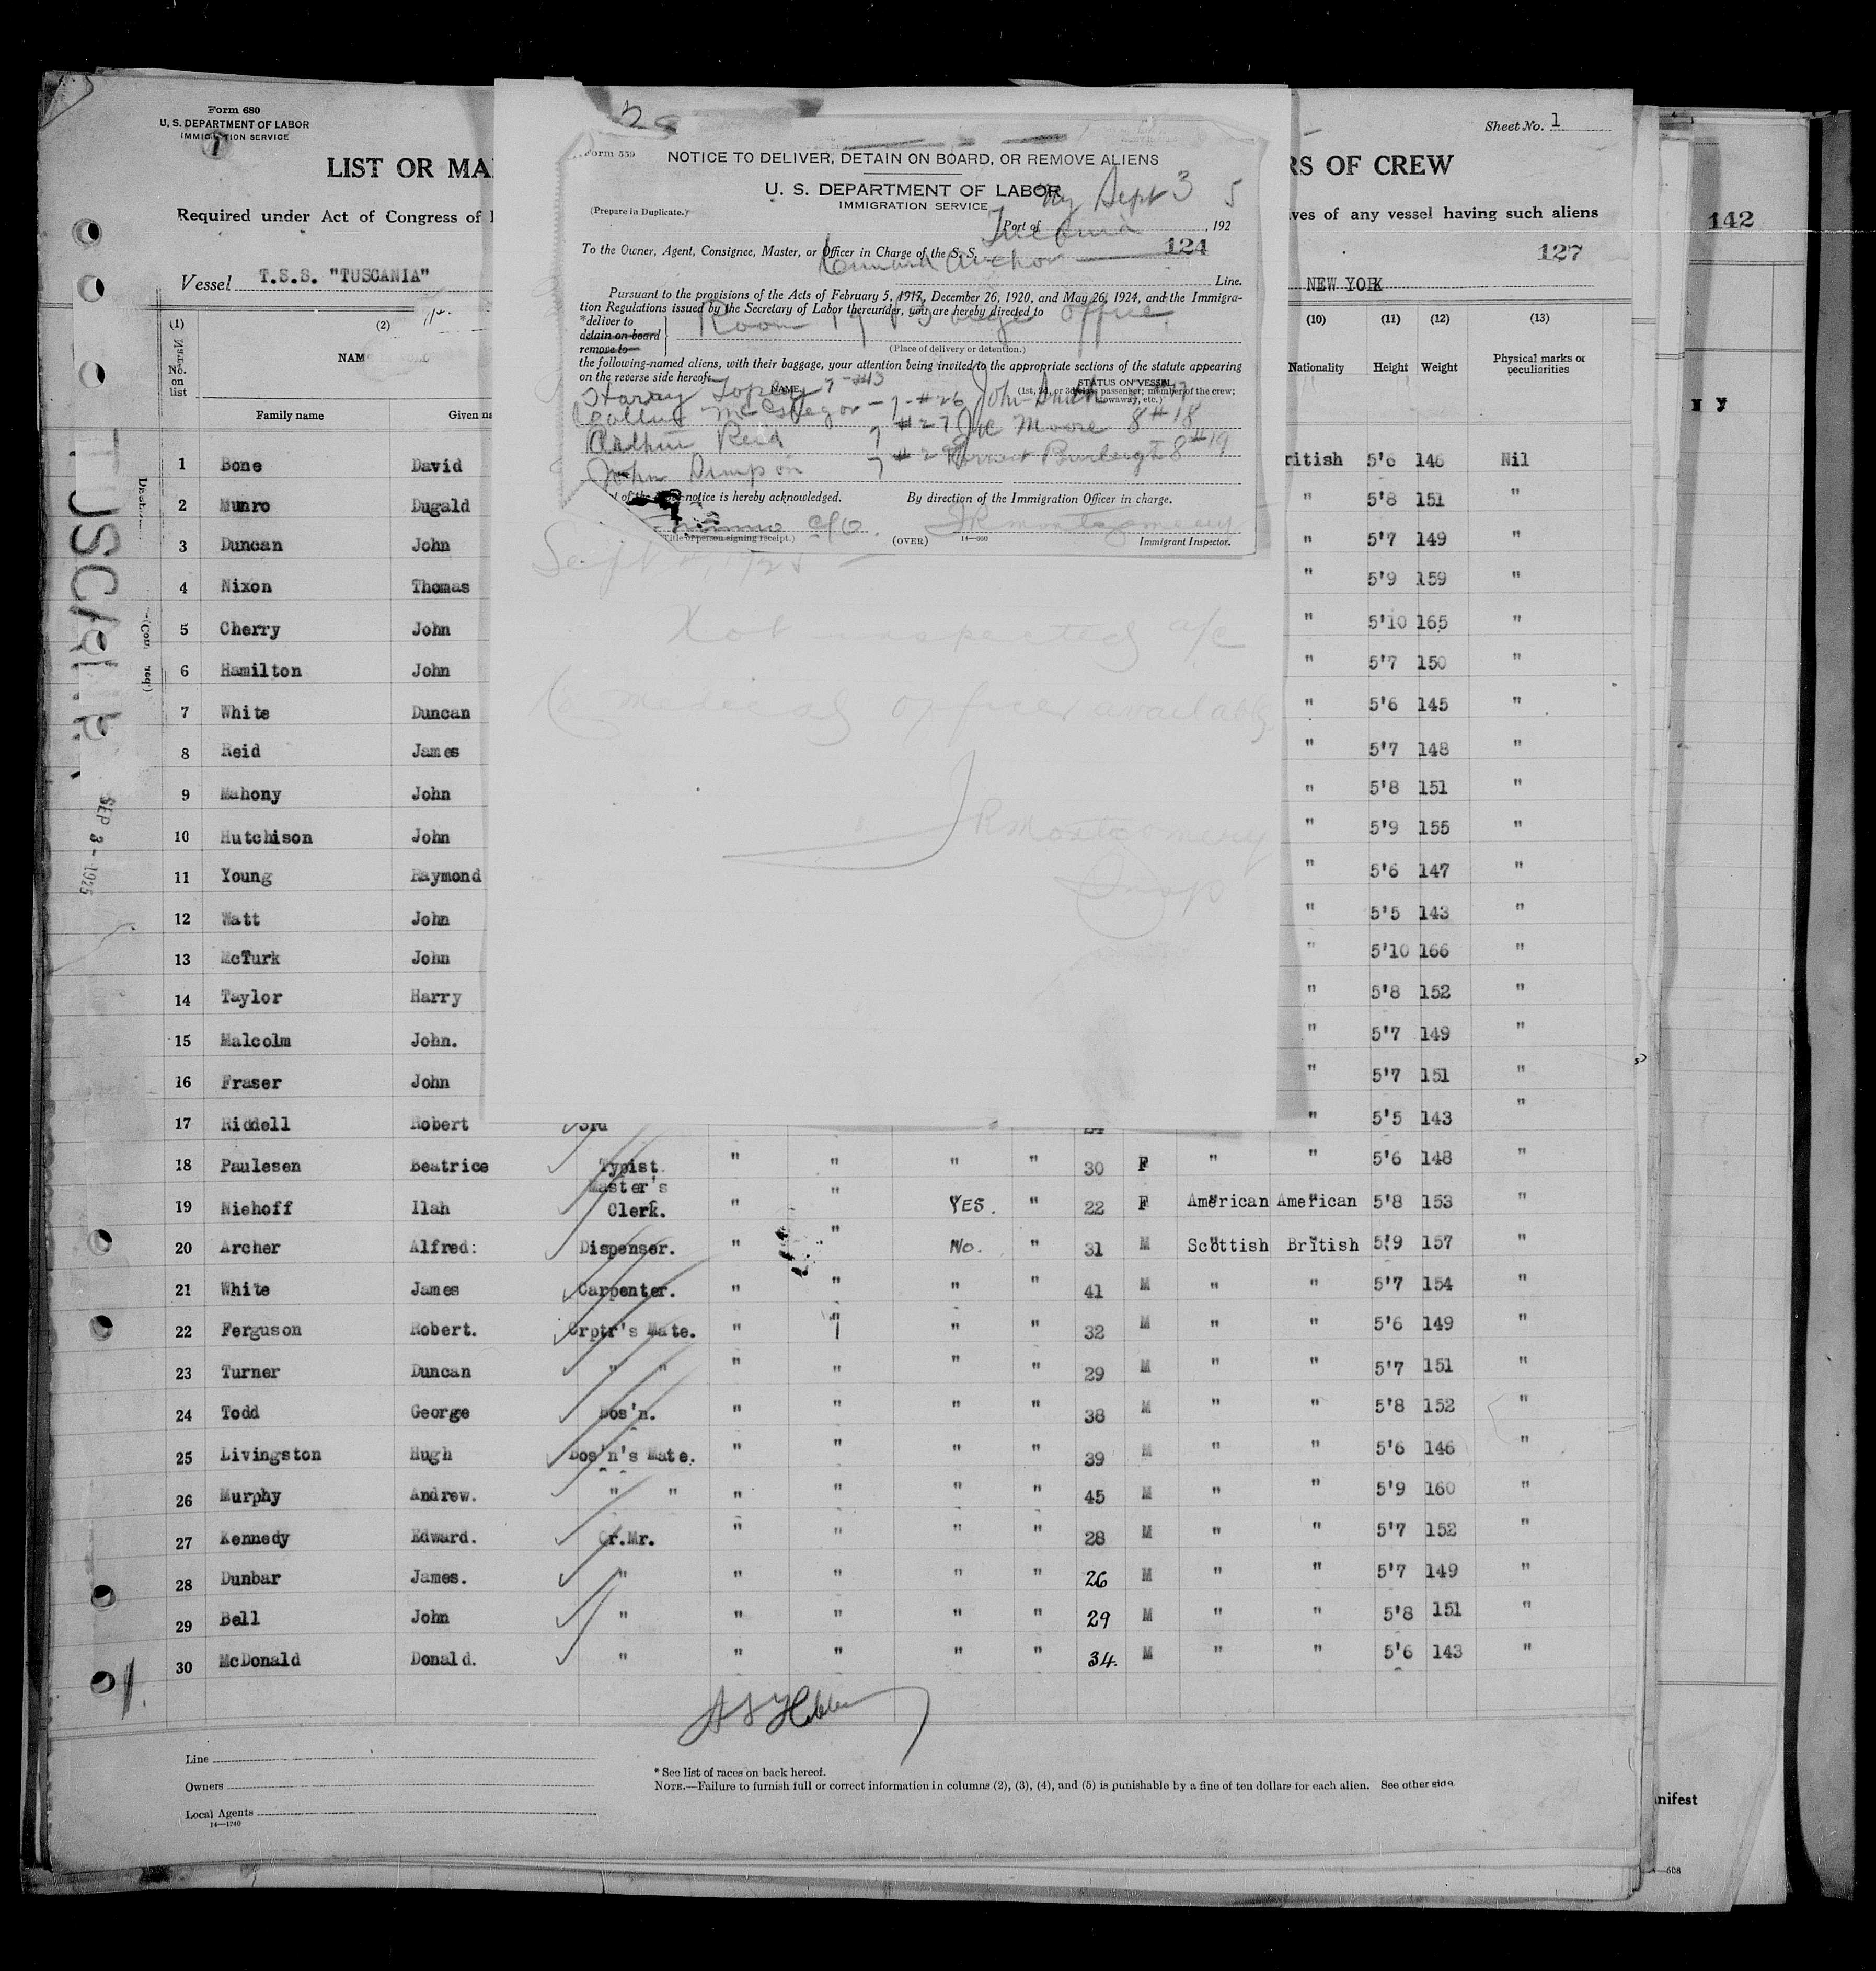 Form 680
U. S. DEPARTMENT OF LABOR
IMMIGRATION SERVICE
Sheet No. 1
LIST OR MA
RS OF CREW
Required under Act of Congress of
ves of any vessel having such aliens
142
127
Vessel T.S.S. "TUSCANIA"
NEW YORK
Form 559
NOTICE TO DELIVER, DETAIN ON BOARD, OR REMOVE ALIENS
U. S. DEPARTMENT OF LABOR
IMMIGRATION SERVICE
(Prepare in Duplicate.)
Ny Sept 3 5
Port of , 192
To the Owner, Agent, Consignee, Master, or Officer in Charge of the S. S. 124
Cunard Anchor Line.
Pursuant to the provisions of the Acts of February 5, 1917, December 26, 1920, and May 26, 1924, and the Immigra-
tion Regulations issued by the Secretary of Labor thereunder, you are hereby directed to
*deliver to
detain on board
remove to
Room office
(Place of delivery or detention.)
the following-named aliens, with their baggage, your attention being invited to the appropriate sections of the statute appearing
on the reverse side hereof:
NAME
STATUS ON VESSEL
(1st, 2d, or 3d class passenger; member of the crew; stowaway, etc.)
Harry 7-#13 John
McGregor - 7-#26 Moore 8#18
Arthur Reid 7 #27 8#19
John 7 #2
notice is hereby acknowledged. By direction of the Immigration Officer in charge.
c/o. JR Montgomery
(Title of person signing receipt.) (OVER) 14—600 Immigrant Inspector.
Sept
Not inspected a/c
no medical officer available
JR Montgomery
Insp
(1) (2) (10) (11) (12) (13)
No. on list
NAM
Family name Given na
Nationality Height Weight Physical marks or peculiarities
TUSCANIA
SEP 3 - 1925
1 Bone David ritish 5'6 146 Nil
2 Munro Dugald " 5'8 151 "
3 Duncan John " 5'7 149 "
4 Nixon Thomas " 5'9 159 "
5 Cherry John " 5'10 165 "
6 Hamilton John " 5'7 150 "
7 White Duncan " 5'6 145 "
8 Reid James " 5'7 148 "
9 Mahony John " 5'8 151 "
10 Hutchison John " 5'9 155 "
11 Young Raymond " 5'6 147 "
12 Watt John " 5'5 143 "
13 McTurk John " 5'10 166 "
14 Taylor Harry " 5'8 152 "
15 Malcolm John. " 5'7 149 "
16 Fraser John " 5'7 151 "
17 Riddell Robert 3rd " 5'5 143 "
18 Paulesen Beatrice Typist. " " " " 30 F " " 5'6 148 "
19 Niehoff Ilah Master's Clerk. " " YES. " 22 F American American 5'8 153 "
20 Archer Alfred: Dispenser. " " No. " 31 M Scottish British 5'9 157 "
21 White James Carpenter. " " " " 41 M " " 5'7 154 "
22 Ferguson Robert. Crptr's Mate. " " " " 32 M " " 5'6 149 "
23 Turner Duncan " " " " " " 29 M " " 5'7 151 "
24 Todd George Bos'n. " " " " 38 M " " 5'8 152 "
25 Livingston Hugh Bos'n's Mate. " " " " 39 M " " 5'6 146 "
26 Murphy Andrew. " " " " " " 45 M " " 5'9 160 "
27 Kennedy Edward. Qr.Mr. " " " " 28 M " " 5'7 152 "
28 Dunbar James. " " " " " 26 M " " 5'7 149 "
29 Bell John " " " " " 29 M " " 5'8 151 "
30 McDonald Donald. " " " " " 34. M " " 5'6 143 "
Line
Owners
Local Agents
14—1240
* See list of races on back hereof.
NOTE.—Failure to furnish full or correct information in columns (2), (3), (4), and (5) is punishable by a fine of ten dollars for each alien. See other side.
nifest
—608